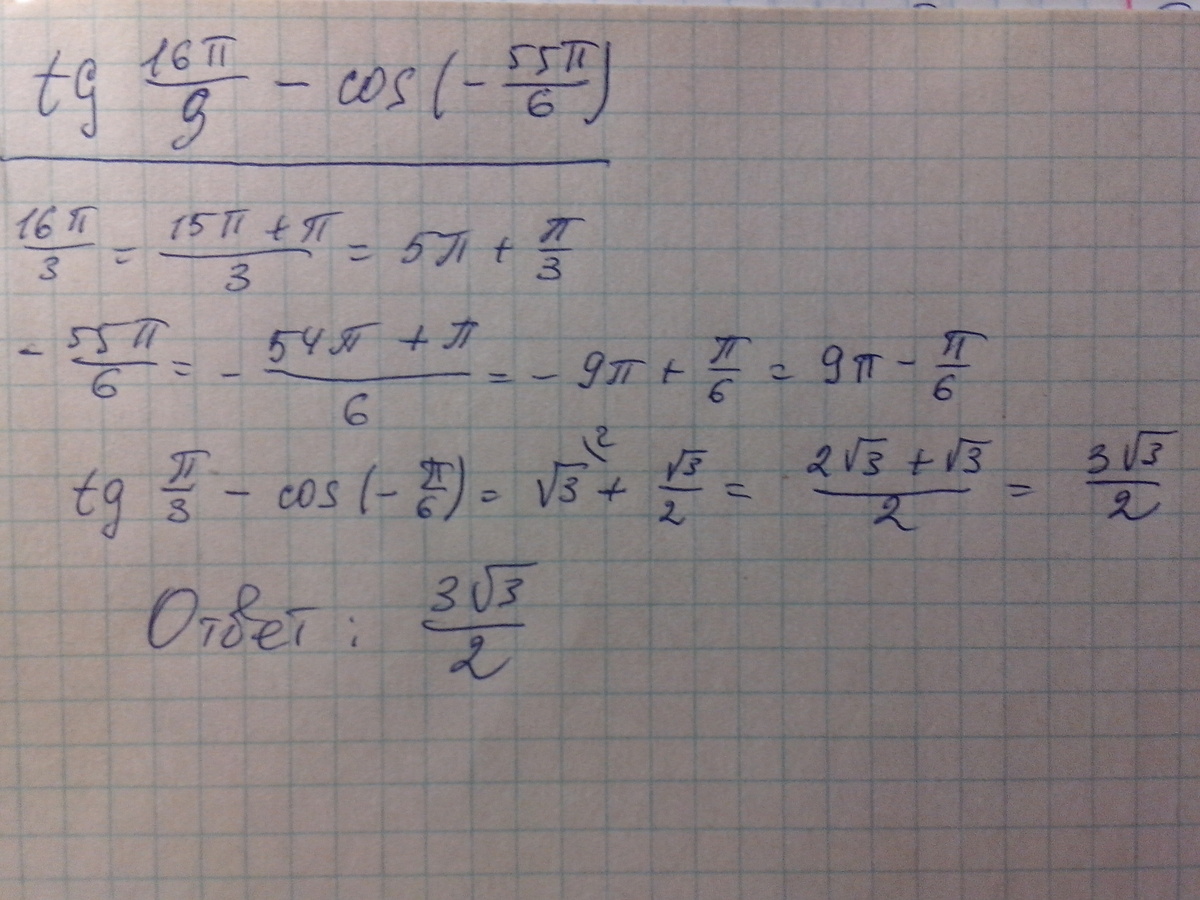 tg 16π/9 - cos(-55π/6)
16π/3 = (15π + π)/3 = 5π + π/3
- 55π/6 = - (54π + π)/6 = - 9π + π/6 = 9π - π/6
tg π/3 - cos(-π/6) = √3 \2 + √3/2 = (2√3 + √3)/2 = 3√3/2
Ответ: 3√3/2